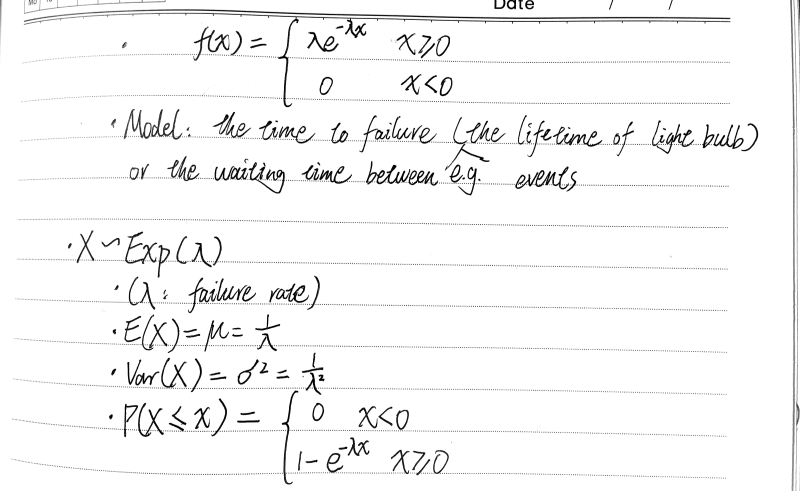 Date / /
· f(x) = { λe^{-λx} x⩾0
0 x<0
· Model: the time to failure (the lifetime of light bulb)
or the waiting time between e.g. events
· X ~ Exp(λ)
· (λ: failure rate)
· E(X) = μ = 1/λ
· Var(X) = σ² = 1/λ²
· P(X ⩽ x) = { 0 x<0
1 - e^{-λx} x⩾0